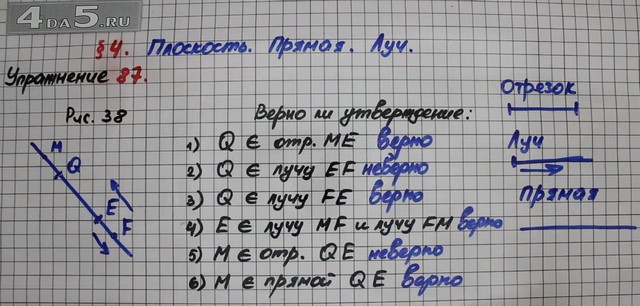 4DA5.RU
§4. Плоскость. Прямая. Луч.
Упражнение 87.
Рис. 38
M
Q
E
F
Верно ли утверждение:
1) Q ∈ отр. ME верно
2) Q ∈ лучу EF неверно
3) Q ∈ лучу FE верно
4) E ∈ лучу MF и лучу FM верно
5) M ∈ отр. QE неверно
6) M ∈ прямой QE верно
Отрезок
Луч
прямая